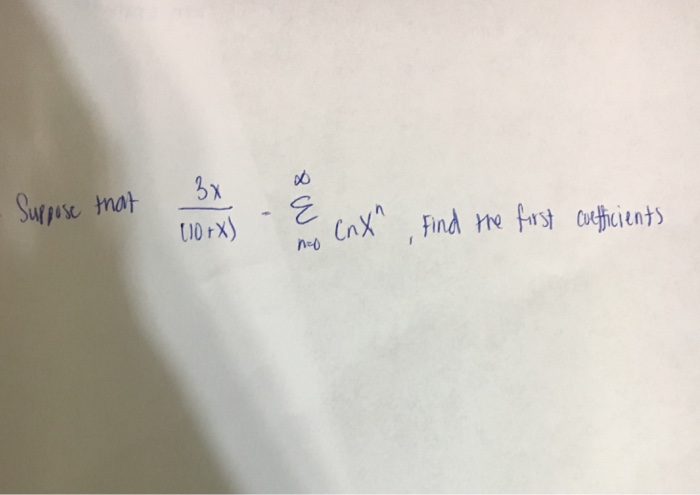 Suppose that 3x/(10+x) - ∞Σn=0 CnX^n , Find the first coefficients